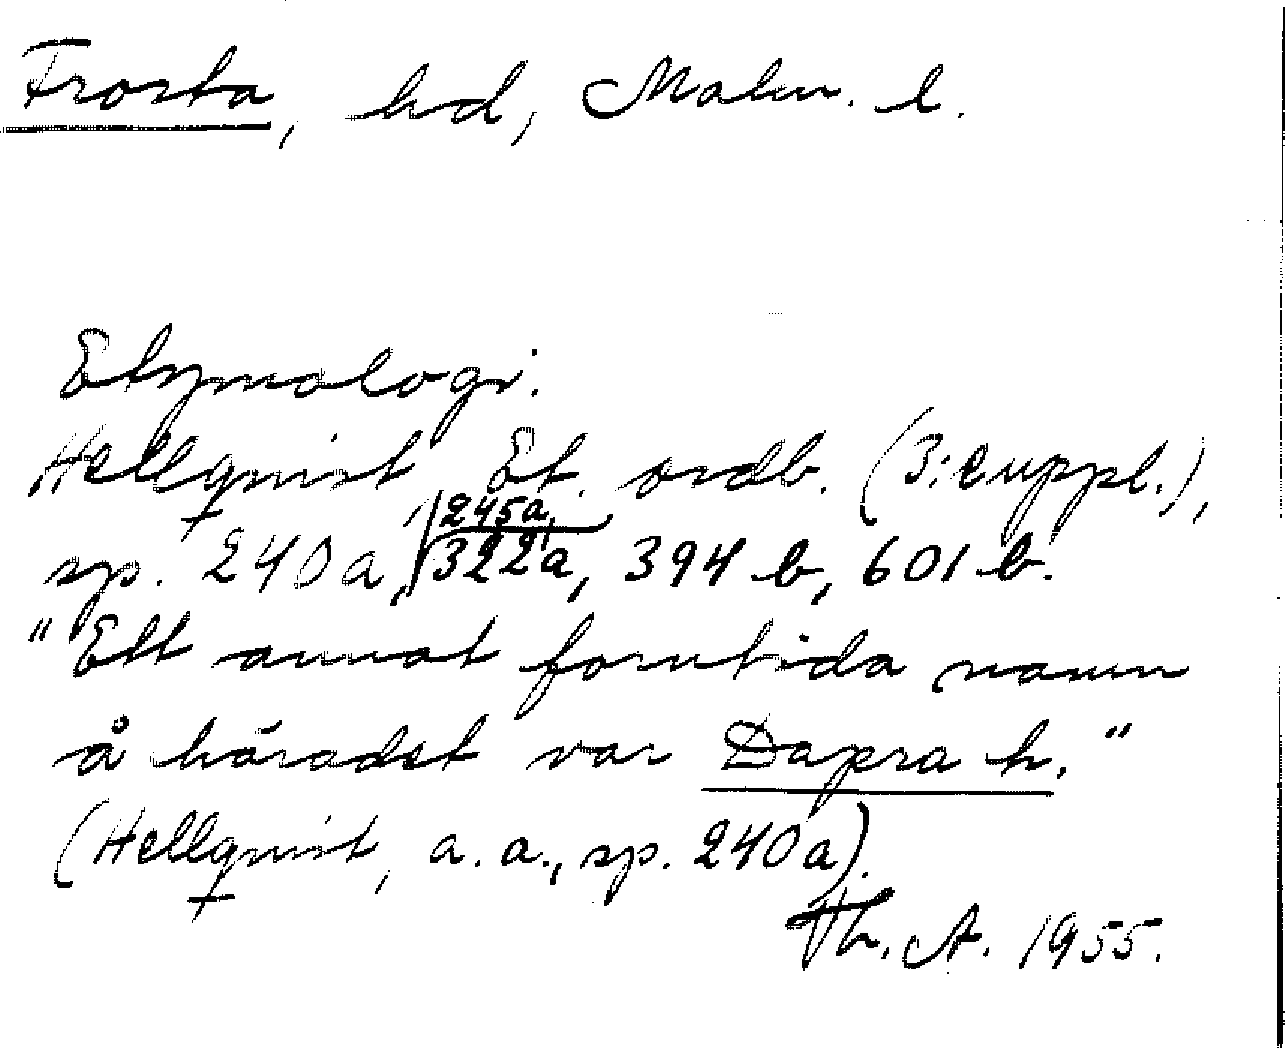 Frosta, hd, Malm. l.
Etymologi.
Hellquist Et. ordb. (3: suppl.),
sp. 240a, 245a, 322a, 394 b, 601 b.
"Ett annat forntida namn
å häradet var Dapra h."
(Hellquist, a. a., sp. 240a).
Th. A. 1955.